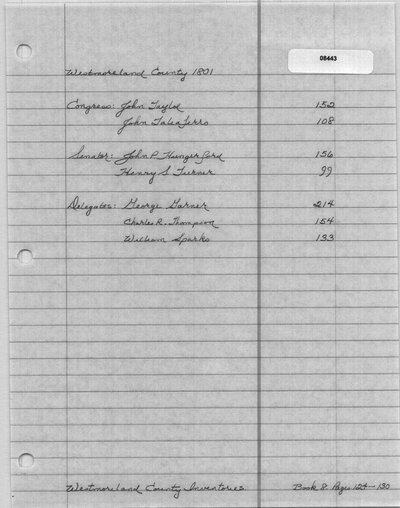 08443
Westmoreland County 1801
Congress: John Tayloe 152
John Taliaferro 108
Senator: John P. Hungerford 156
Henry S. Turner 99
Delegates: George Garner 214
Charles R. Thompson 154
William Sparks 133
Westmoreland County Inventories Book 8 Pages 124-130